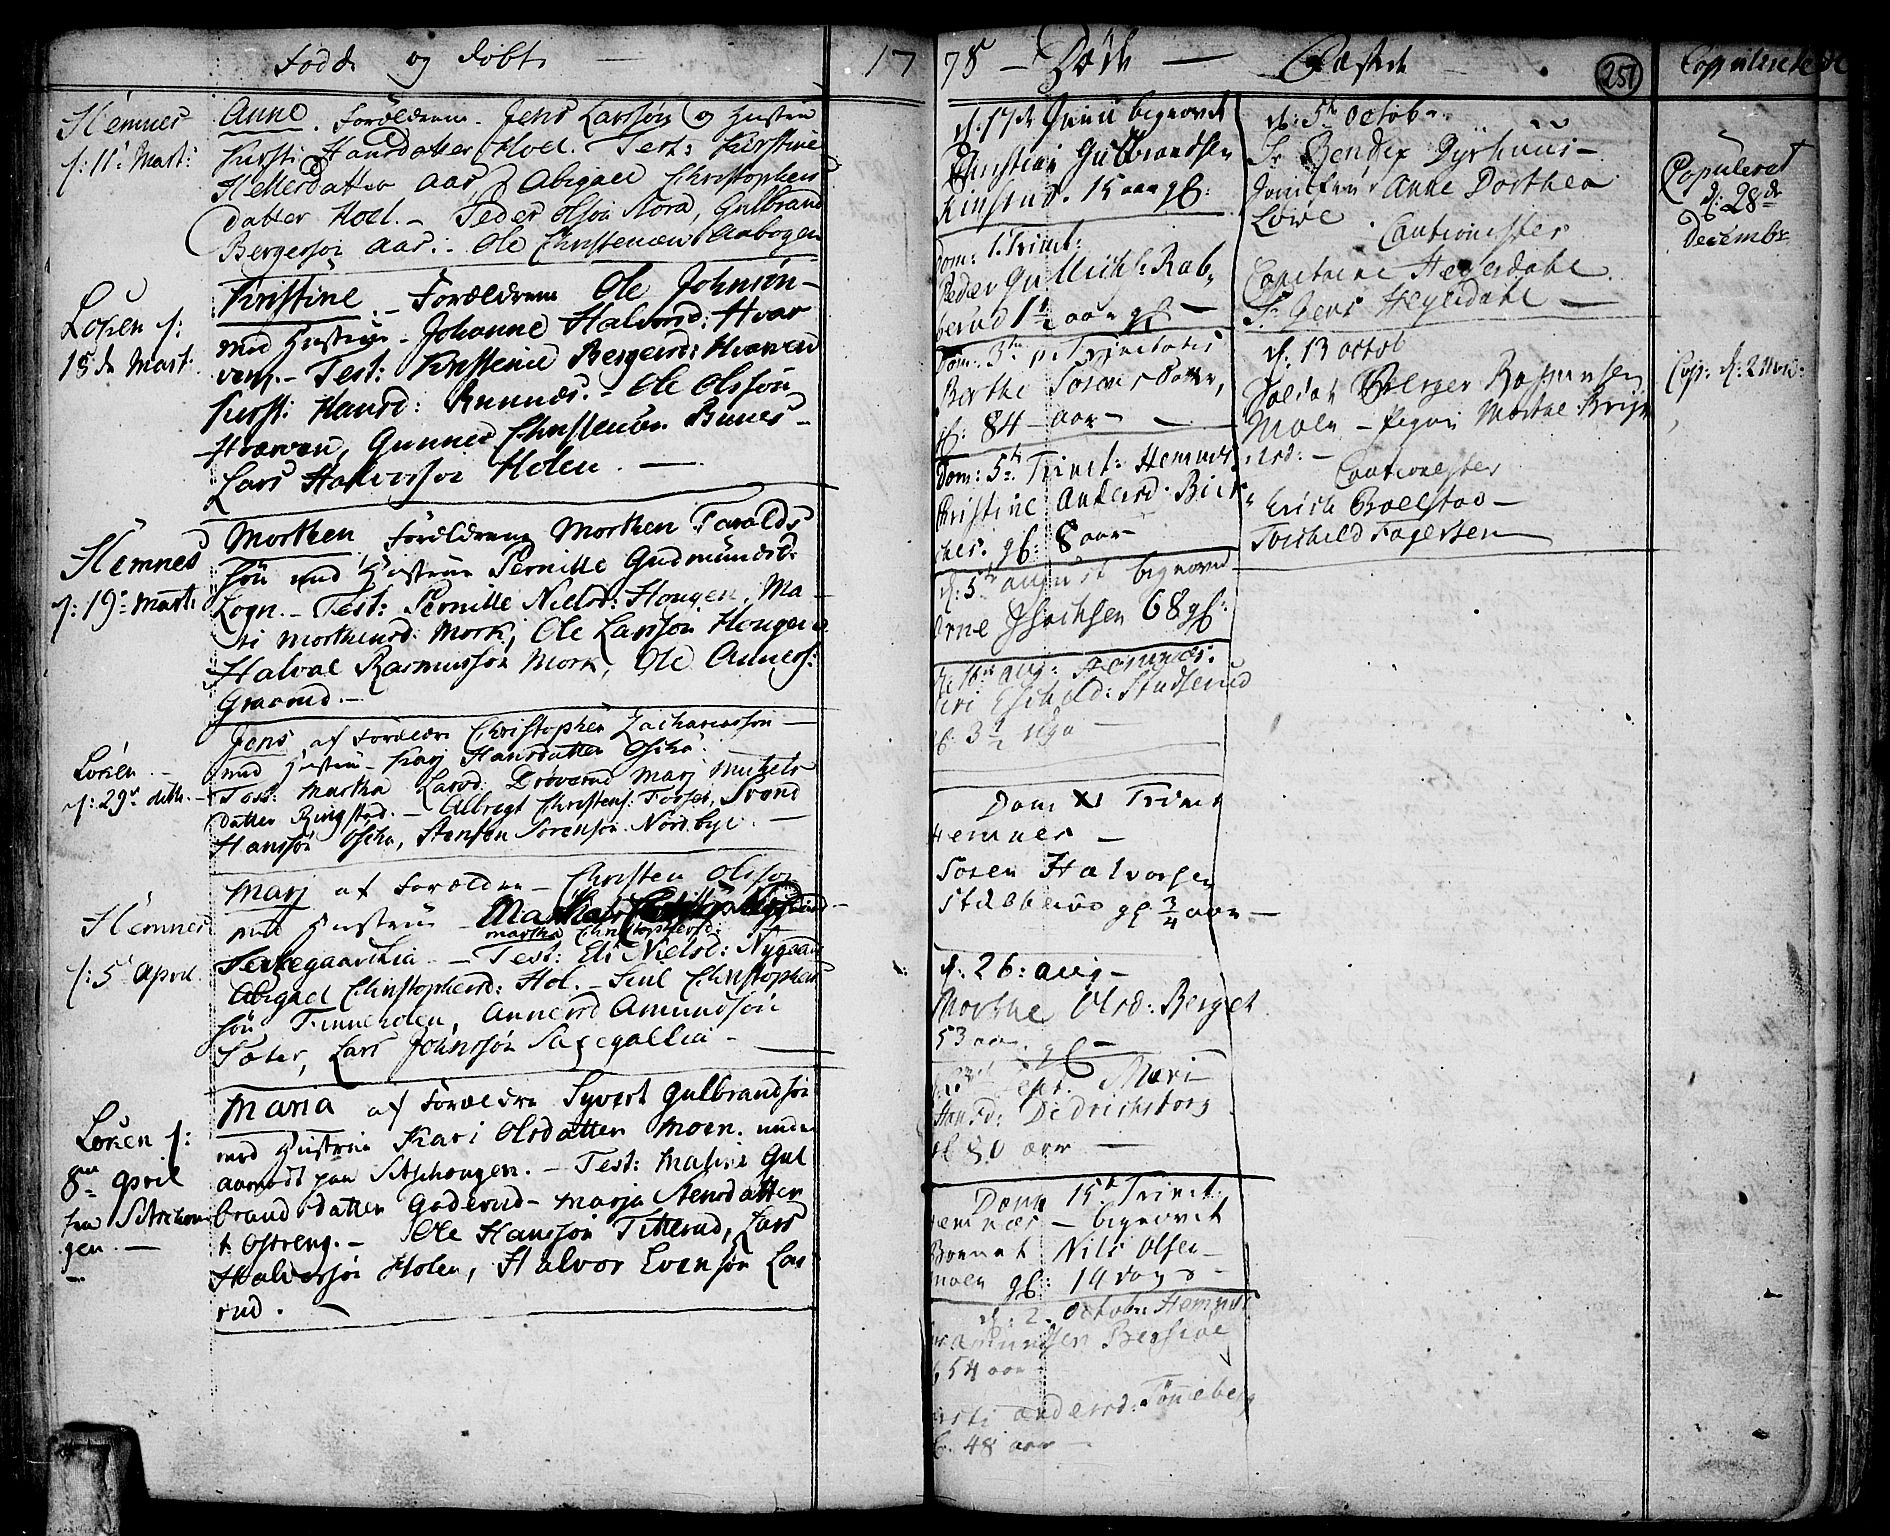 Födde og döbte 17
Hemnes
d: 11te Mart:
Anne. Forældrene Jens Larssøn og Hustru
Kirsti Hansdatter Hoel. Test: Kirstine
Hellesdatter Aas, Abigael Christophers
datter Hoel. - Peder Olsøn Nord, Gulbrand
Bergersøn Aas. Ole Christensen Aabogen
Loken d:
18de Mart.
Kristine. - Forældrene Ole Johnsøn
med Hustrue - Johanne Halvorsd: Hvar
ven. - Test: Kirstine Bergersd: Hvarven
Kirsti Hansd: Runnes. - Ole Olssøn
Hvarven, Gunner Christensøn Bunes
Lars Halvorssøn Holen. -
Hemnes
d: 19de Mart:
Morthen. Forældrene Morthen Taralds
søn med Hustrue Pernille Gudmundsd:
Logn. - Test: Pernille Nielsd: Hougen, Ma-
ri Morthensd: Mork, Ole Larssøn Hougen
Halvol Rasmussøn Mork, Ole Anners:
Graarud. -
Loken -
d: 29de dito. -
Jens af Forældre Christopher Zachariassøn -
med Hustrue - Karj Hansdatter Oshio:
Test: Martha Larsd: Dröverud Marj Michels
datter Ringstad. - Albregt Christens: Fosser, Svend
Hanssøn Oshio, Stensøn Sorensøn Nordbye. -
Hemnes
d: 5te April
Marj af Forældre - Christen Olssøn
med Hustrue -
Martha Christophersd:
- Test: Eli Nielsd: Nygaard
Abigael Christophersd: Hol. - Christophers
søn Finnerden, Anners Amundsøn
Sæter, Lars Johnssøn Sagegallia -
Loken d:
8de April
fra Sitschou
gen. -
Maria af Forældre Syvert Gulbrandsøn
med Hustrue Kari Olsdatter Moen. under
aarrodt paa Sitschougen. - Test: Gul
brandsdatter Goderud - Marja Stensdatter
Ostreng. - Ole Hanssøn Titterud, Lars
Halvorssøn Holen, Halvor Evensøn Las
rud. -
78 - Döde -
d. 17de Junii begravet
Christian Gulbrandsen
Rinsrud. 15 aar gl:
Dom: 1. Trinit:
Peder Gullichs: Rab-
berud 1 1/2 aar gl -
Dom: 3tie Trinitatis
Berthe Sørensdatter,
gl: 84 aar -
Dom: 5te Trinit: Hemnes
Christine Andersd: Bier-
cher. gl: 8 aar
d: 5te August begravet
Arne Isachsen 68 gl:
d: 16de Aug: Hemnes.
Siri Eschild: Studserud
gl: 3 1/2 uge
Dom XI Trinit
Hemnes -
Soren Halvorsen
gl 3/4 aar -
d. 26: Aug -
Morthe Olsd: Berget
53 aar gl -
Sept. Mari
Hansd: Dedrichsborg
gl 80 aar -
Dom 15te Trinit:
Hemnæs - begravet
Barnet Nils Olsen
Moen gl: 14 dage -
d. 2. Octobr Hemnes
Amundsen
54 aar
Kirsti Andersd: Tönneberg
gl. 48 aar -
Fæstede
d: 5te Octobr
Sr Bendix Dyrhuus -
Jomfrue Anne Dorthea
Löve
Cautionister
Capitaine Hegerdahl
Sr Jens Hegerdahl -
d. 13 Octob
Soldat Berger Rasmusen
Moen - Pigen Morthe Brijn
ilsd: -
Cautionister
Erich Bøelstad -
Torchild Fagersen
251
Copulerede
Copuleret
d: 28de
Decembr
Cop: d: 2 Nov: